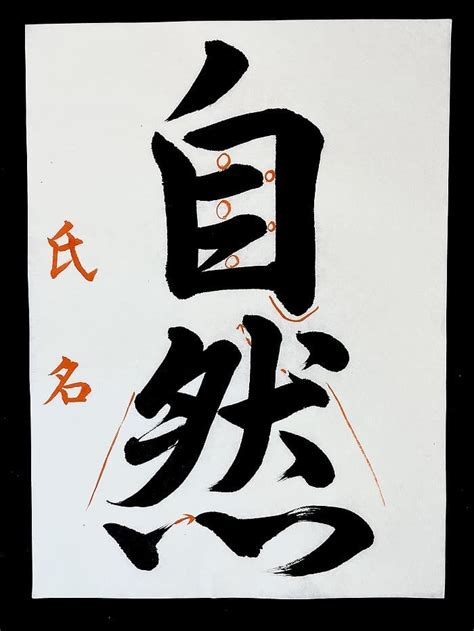 自然
氏名